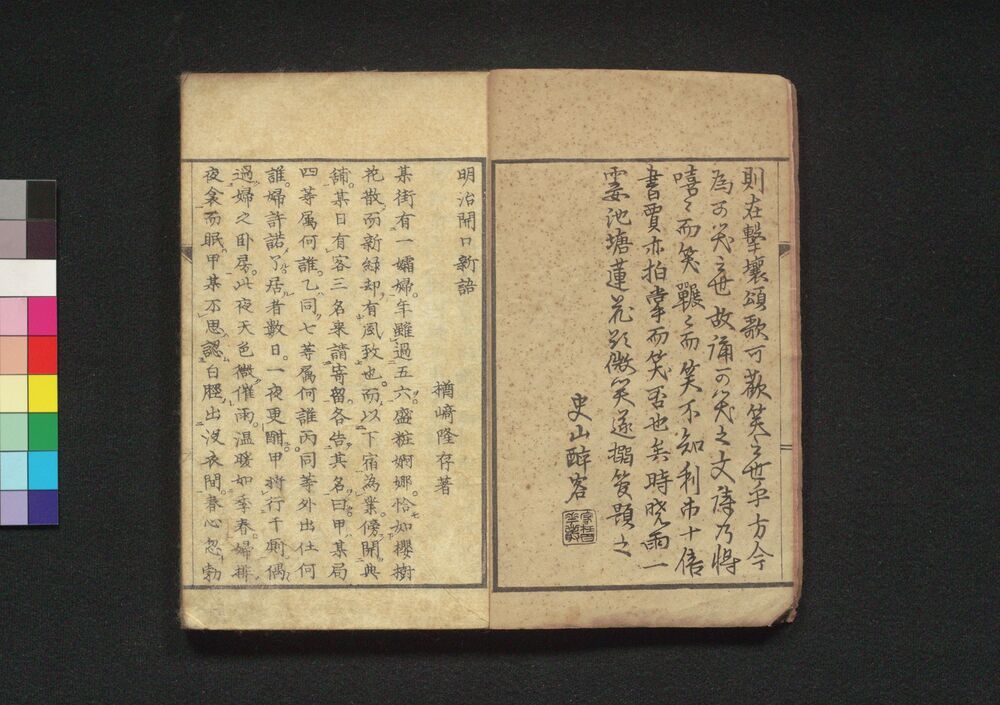 則在擊壤頌歌可歡笑之世乎方今
為可笑之世故誦可笑之文漪乃將
嘻々而笑囅々而笑不知利市十倍
書賈亦拍掌而笑否也矣時曉雨一
霎池塘蓮花欲微笑遂搦筆題之
史山醉客
明治開口新語
樽崎隆存著
某街有一孀婦年雖過五六盛粧婀娜恰如櫻樹
花散而新綠却有風致也而以下宿為業傍開典
舖某日有客三名來請寄留各告其名曰甲某局
四等属何誰乙同七等属何誰丙同等外出仕何
誰婦許諾了居者數日一夜更酣甲將行于厠偶
過婦之卧房此夜天色微催雨温暖如季春婦排
夜衾而眠甲某不思認白脛出没衣間春心忽勃